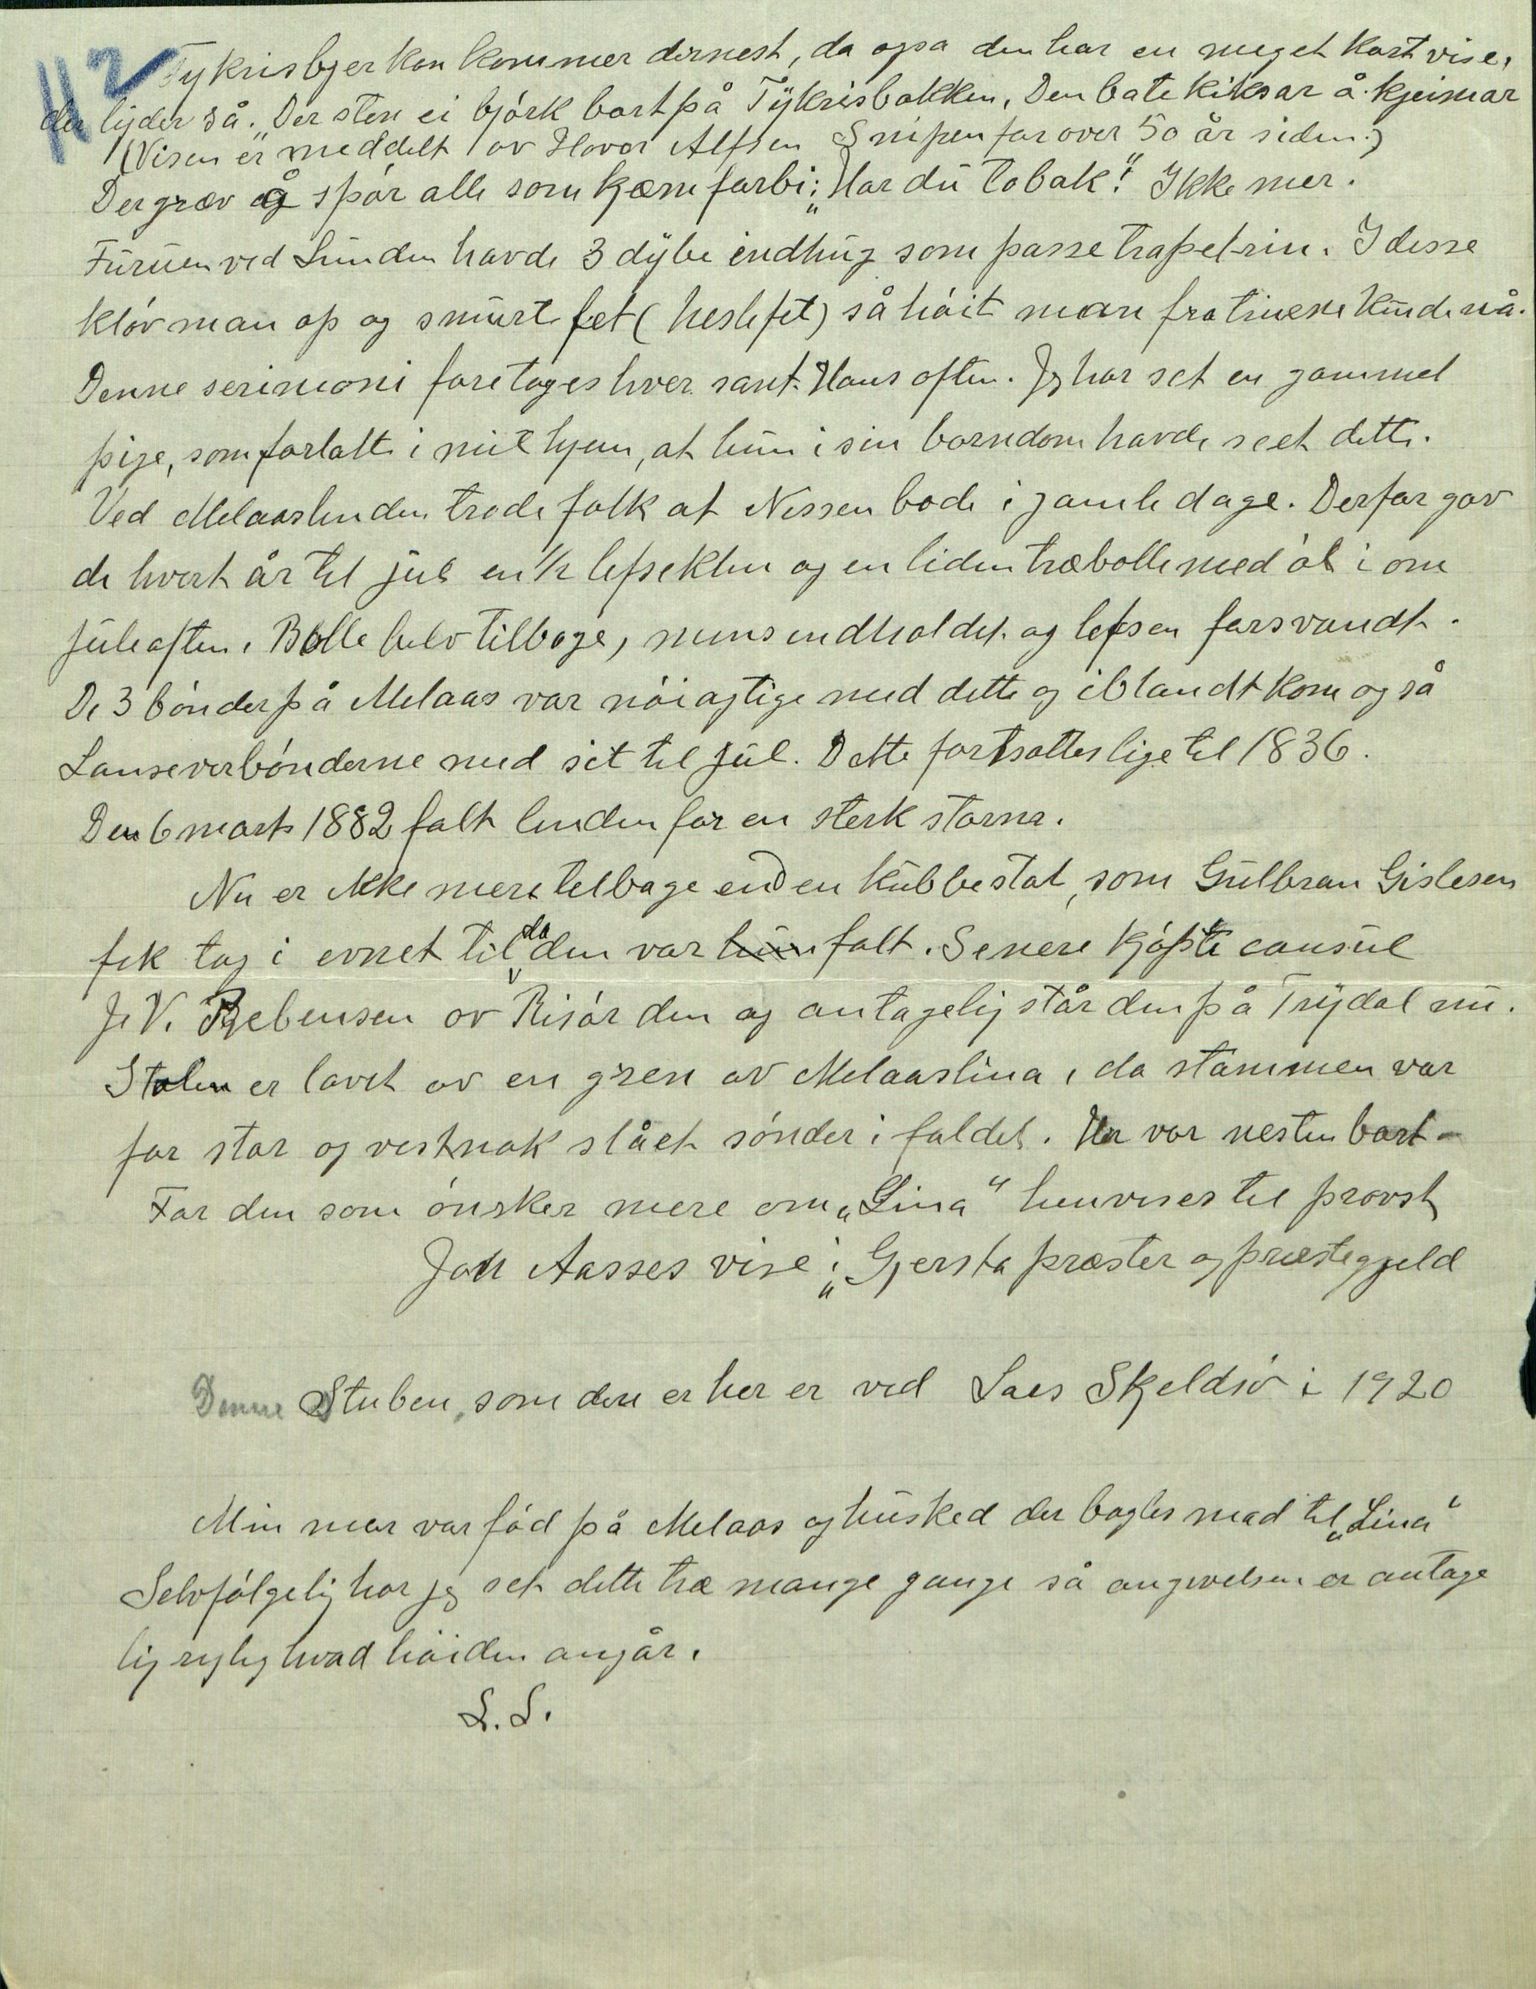 112
Tykrisbjerkan kommer dernest, da ogsa den har en meget kort vise,
der lyder så. „Der sten ei bjørk bort på Tykrisbakken, Den bate kiksar å kjeimar
(Visen er meddelt av Hovor Alfsen Snipen for over 50 år siden.)
Der græv og spør alle som kjæm forbi: „Har du tobak!" Ikke mer.
Furuen ved Lunden havde 3 dybe indhug som passe trapetrin. I disse
kløv man op og smurte fet (heslefet) så høit man fra trinene kunde nå.
Denne serimoni foretoges hver sant. Hans aften. Jeg har set en gammel
pige, som fortalte i mit hjem, at hun i sin barndom havde seet dette.
Ved Melaaslinden trode folk at Nissen bode i gamle dage. Derfor gav
de hvert år til jul en ½ lefseklin og en liden træbolle med øl i om
juleaften. Bolle blev tilbage, mens indholdet og lefsen forsvandt.
De 3 bønder på Melaas var nøiagtige med dette og iblandt kom også
Lanseverbønderne med sit til jul. Dette fortsattes lige til 1836.
Den 6 marts 1882 falt linden for en sterk storm.
Nu er ikke mere tilbage end en kubbestol, som Gulbran Gislesen
fik tag i evnet til da den var falt. Senere kjøpte consul
J. V. Prebensen av Risør den og antagelig står den på Trydal nu.
Stolen er lavet av en gren av Melaaslina, da stammen var
for stor og vestnok slået sønder i faldet. Den var nesten bort-
For den som ønsker mere om „Lina" henvises til provst
Jon Aasses vise i „Gjersta præster og præstegjeld
Denne Stuben, som den er her er ved Lars Skjeldsø i 1920
Min mor var fød på Melaas og husked der bagtes mad til „Lina"
Selvfølgelig har jeg set dette træ mange gange så angivelsen er antage
lig rigtig hvad høiden angår.
L. S.